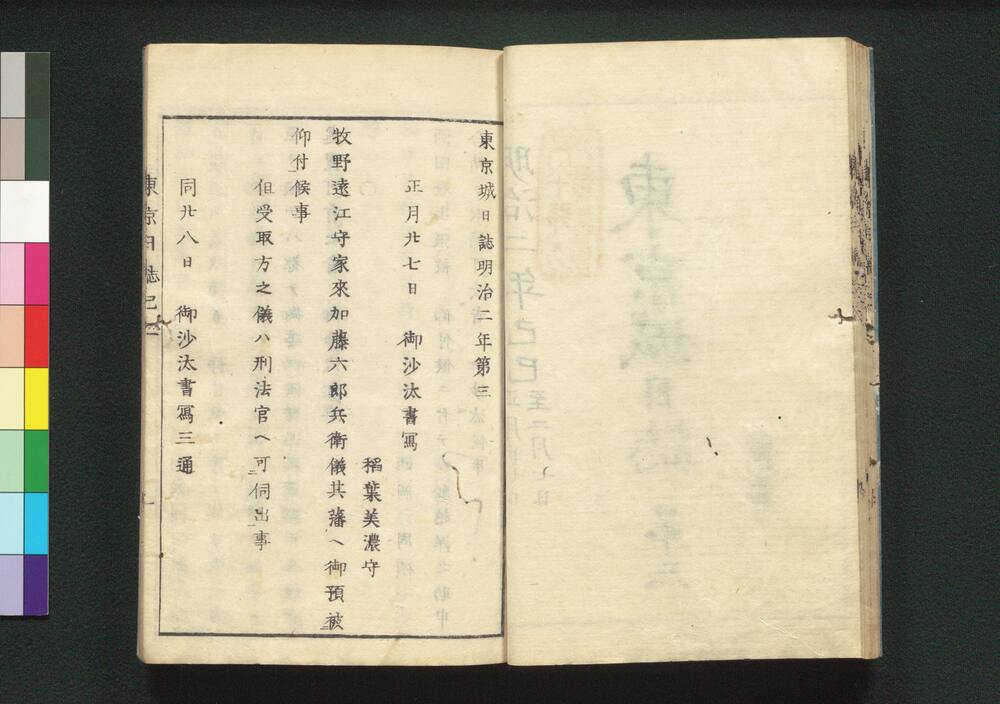 東京城日誌明治二年第三
正月廿七日　御沙汰書寫
稻葉美濃守
牧野遠江守家來加藤六郎兵衛儀其藩ヘ御預被
仰付候事
但受取方之儀ハ刑法官ヘ可伺出事
同廿八日　御沙汰書寫三通
東京日誌己三